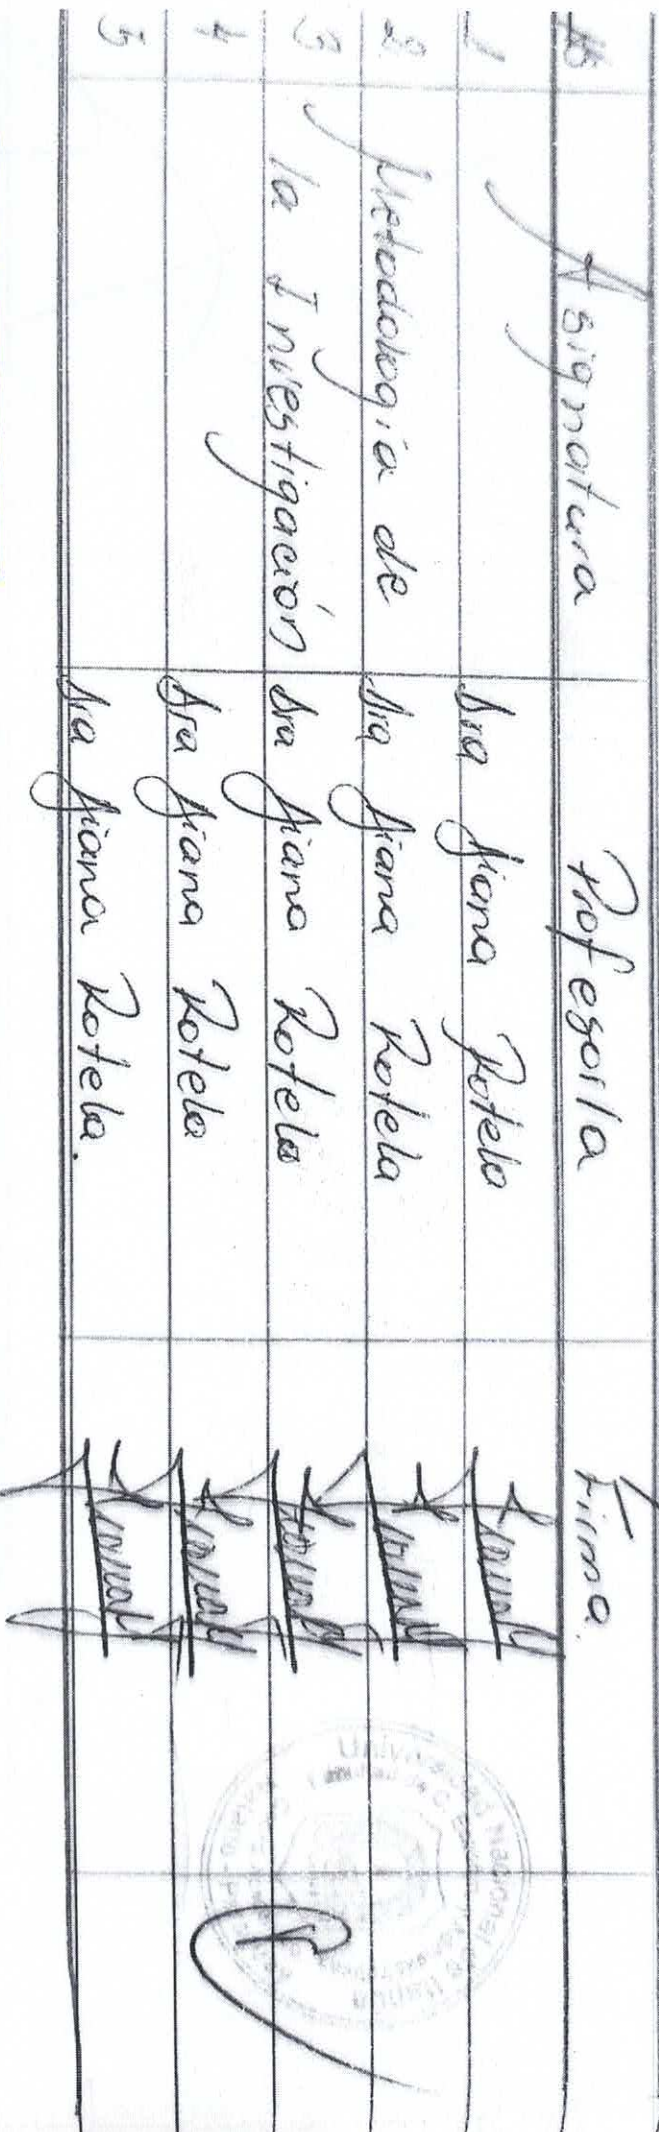 Asignatura Profesor/a Firma
1 Dra Diana Rotela
2 Metodología de Dra Diana Rotela
3 la Investigación Dra Diana Rotela
4 Dra Diana Rotela
5 Dra Diana Rotela.
Universidad Nacional de
Facultad de C.